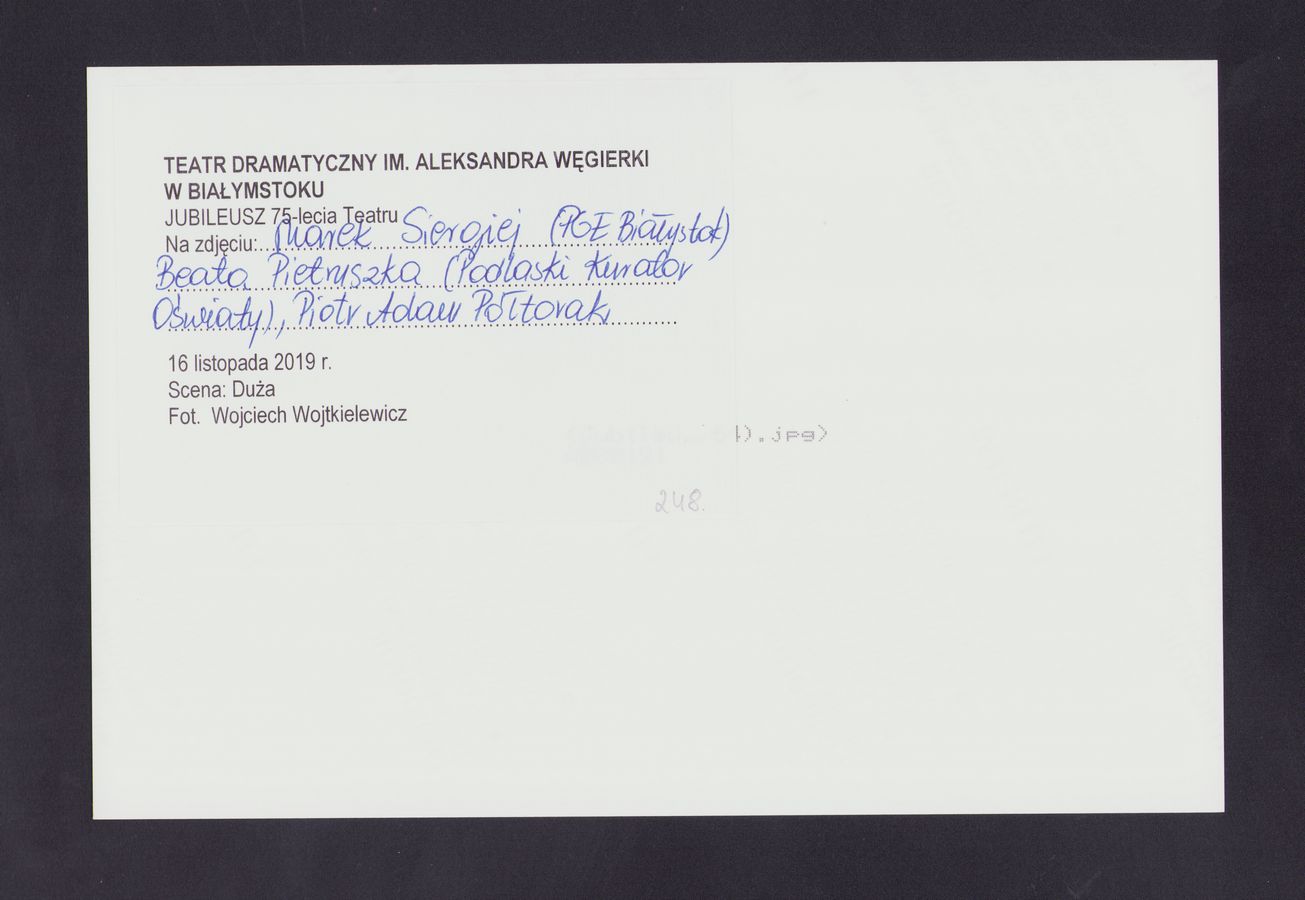 TEATR DRAMATYCZNY IM. ALEKSANDRA WĘGIERKI
W BIAŁYMSTOKU
JUBILEUSZ 75-lecia Teatru
Na zdjęciu: Marek Siergiej (PGE Białystok)
Beata Pietruszka (Podlaski Kurator
Oświaty), Piotr Adam Półtorak
16 listopada 2019 r.
Scena: Duża
Fot. Wojciech Wojtkielewicz
).jpg)
248.